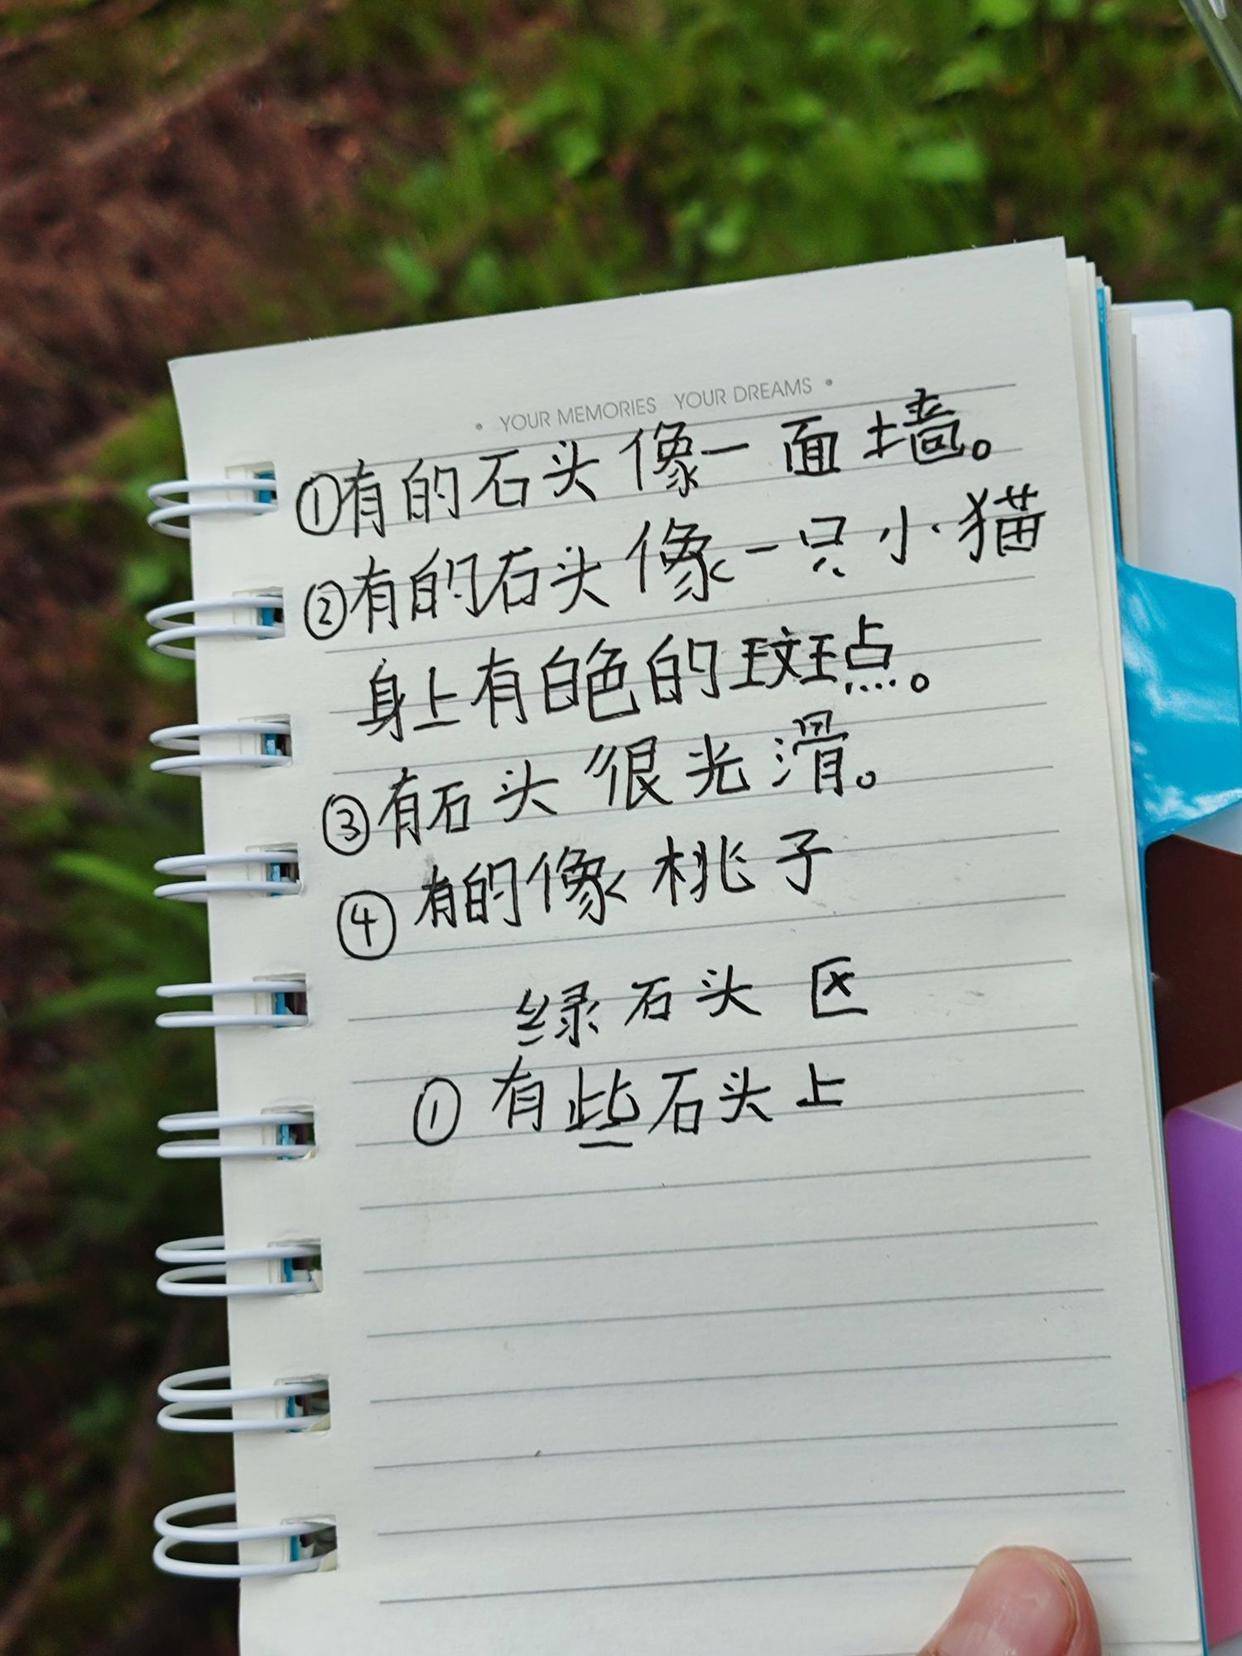 • YOUR MEMORIES YOUR DREAMS •
①有的石头像一面墙。
②有的石头像一只小猫
身上有白色的斑点。
③有石头很光滑。
④有的像桃子
绿石头区
①有些石头上